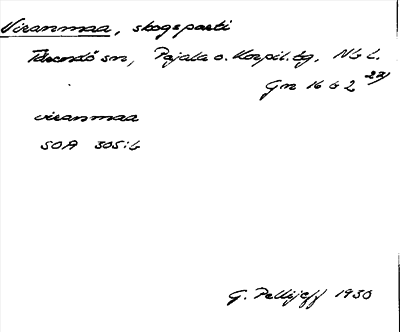 Viranmaa, skogsparti
Tärendö sn, Pajala o. Korpil. tg, Nb L.
Gm 16 b 2 23)
viranmaa
SOA 305:6
G. Pellijeff 1930